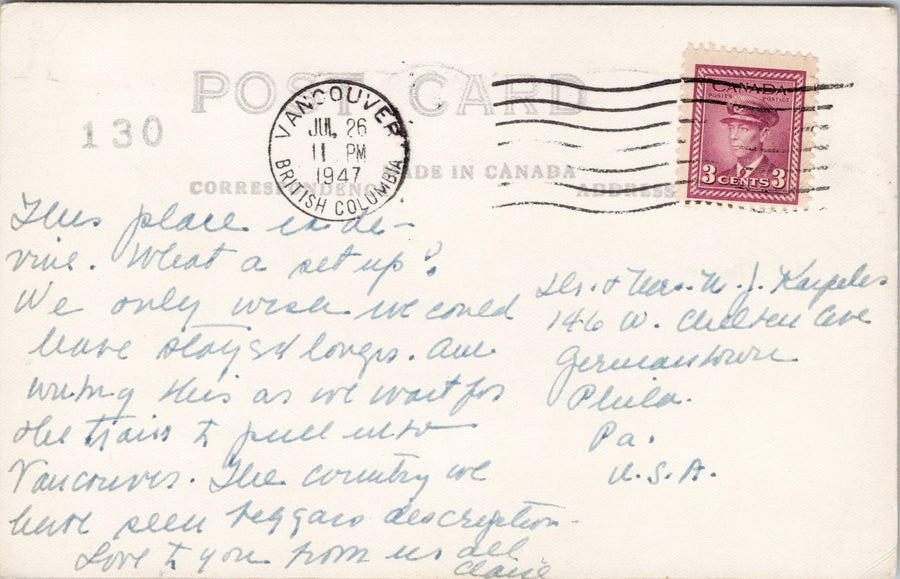 POST CARD
CANADA
POSTES POSTAGE
3 CENTS 3
130
VANCOUVER
JUL 26
11 PM
1947
BRITISH COLUMBIA
MADE IN CANADA
CORRESPONDENCE
ADDRESS
This place is di-
vine. What a set up!
We only wish we could
have stayed longer. Am
writing this as we wait for
the train to pull into
Vancouver. The country we
have seen beggars description.
Love to you from us all
Claire
Dr. & Mrs. M. J. Karpeles
146 W. Chelten Ave
Germantown
Phila.
Pa.
U.S.A.